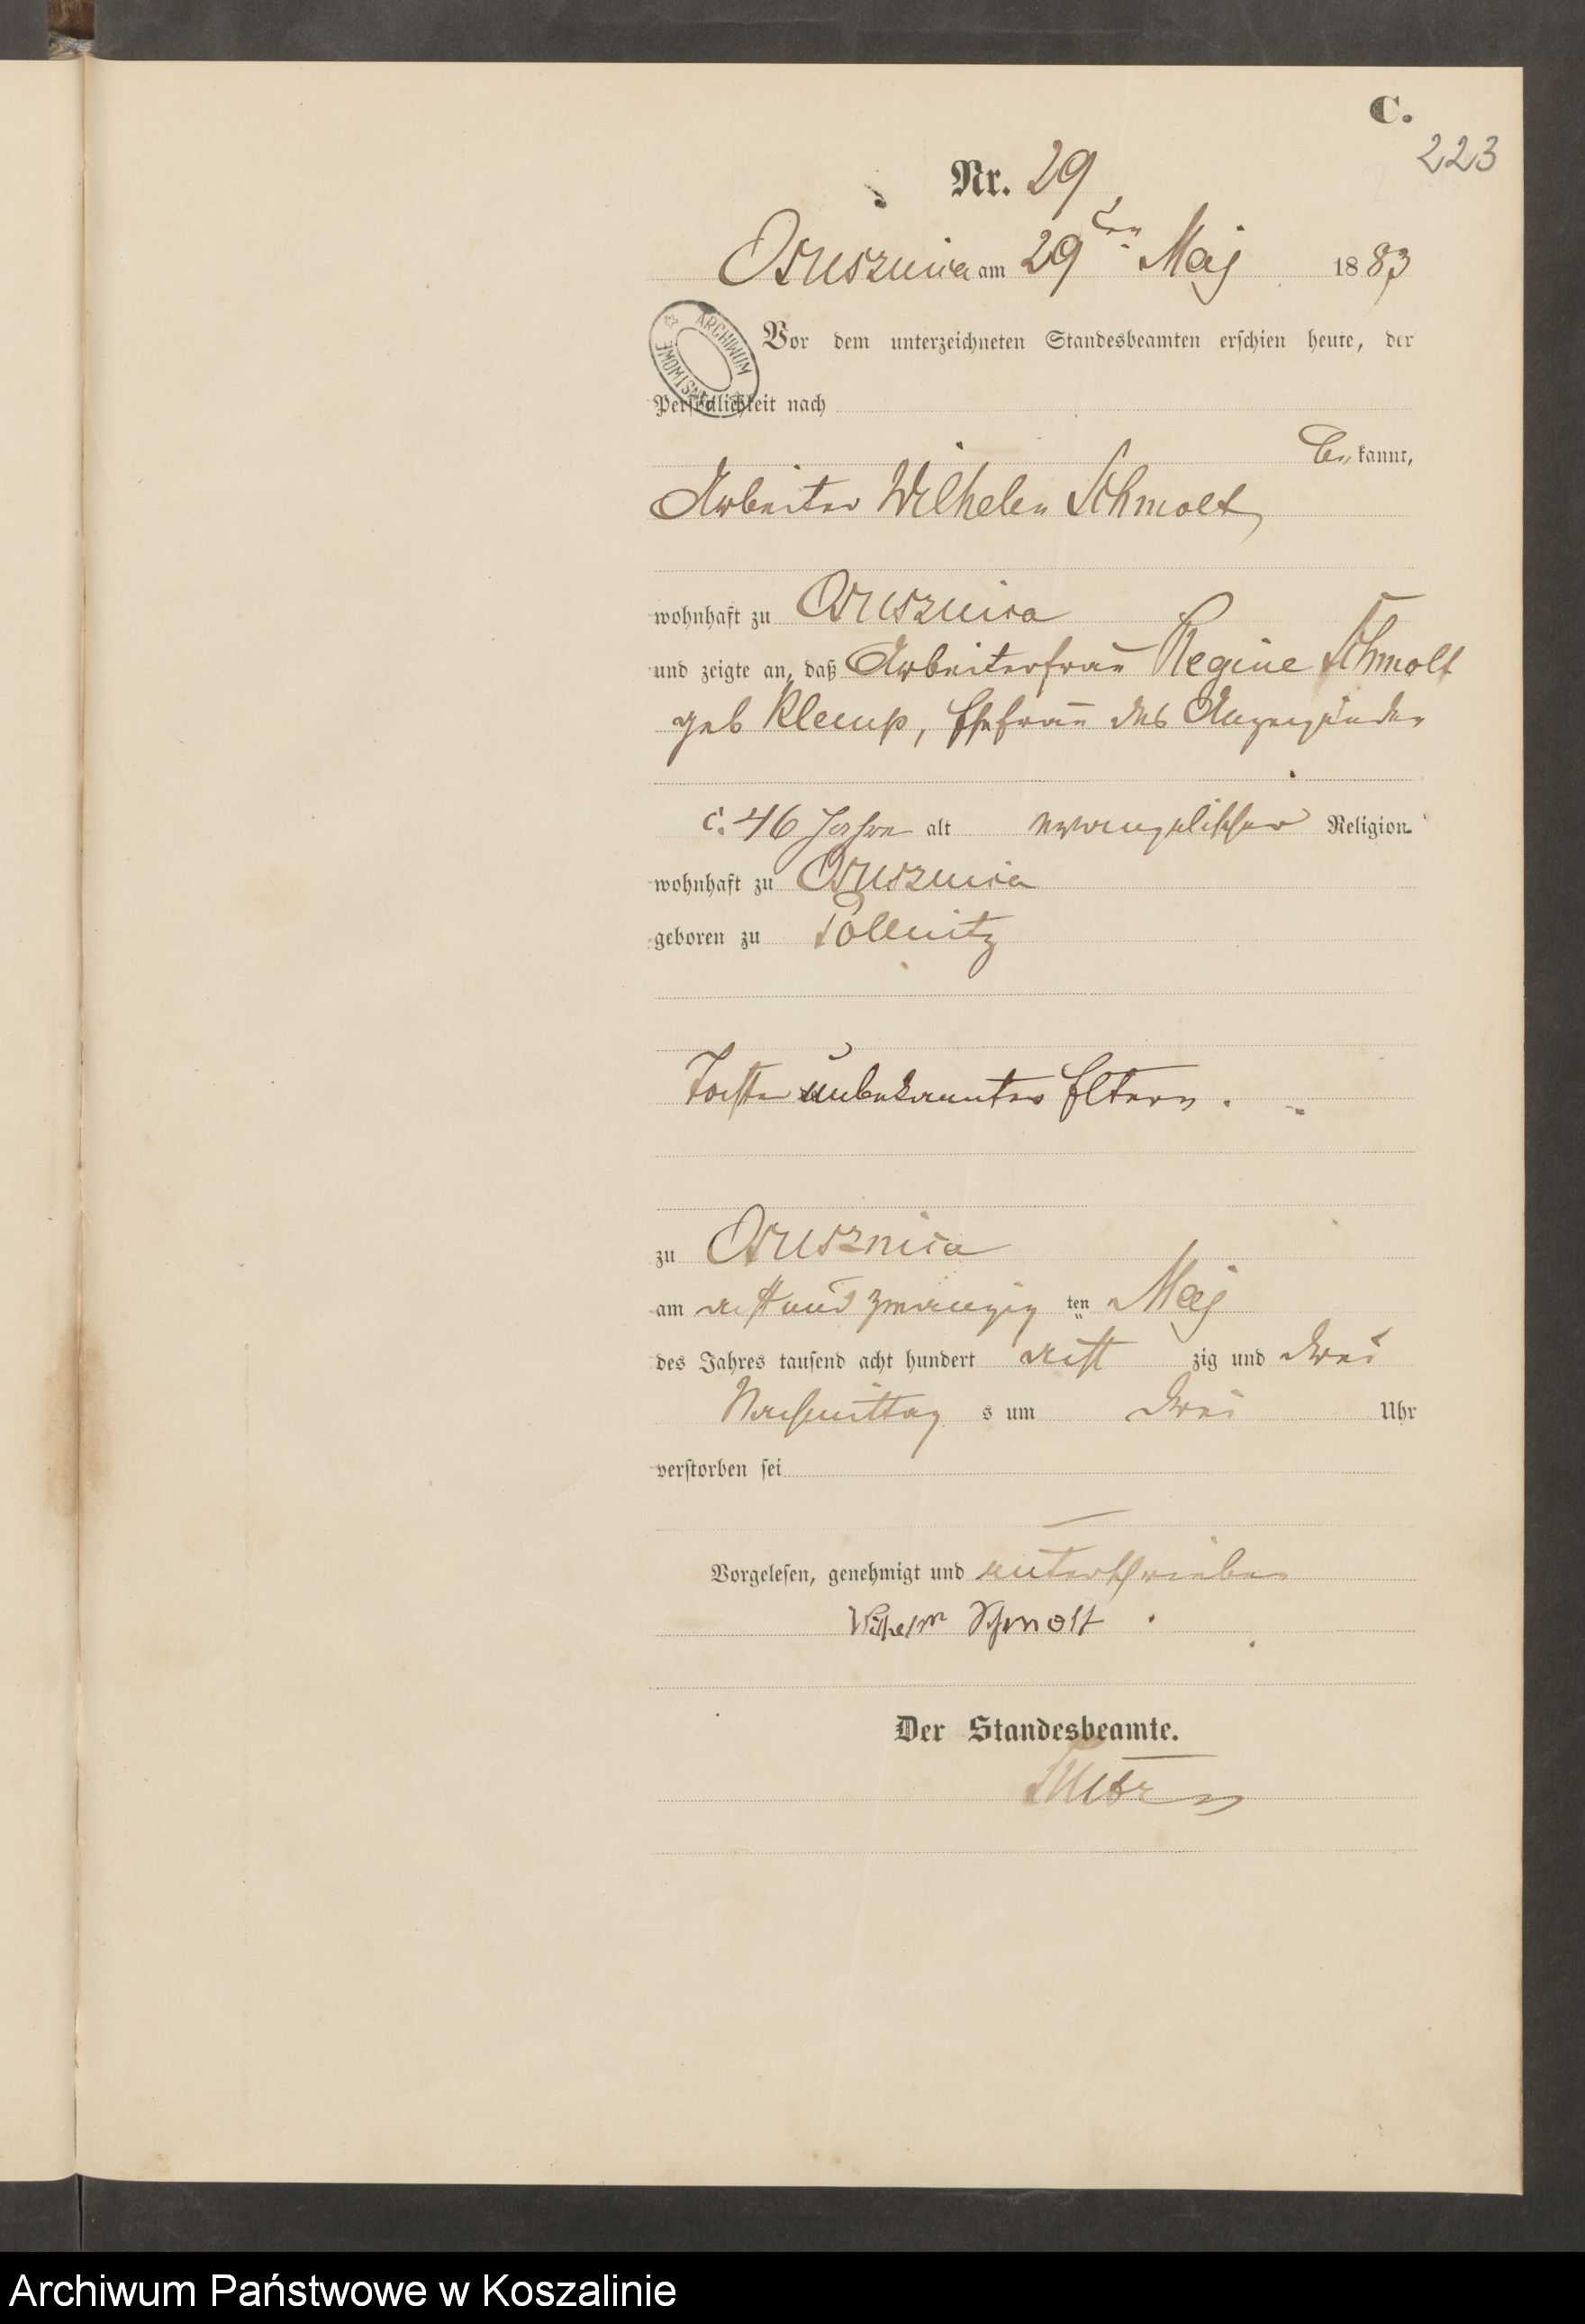 C.
223
Nr. 29
Osusznica am 29ten Maj 1883
ARCHIWUM
Vor dem unterzeichneten Standesbeamten erschien heute, der
Persönlichkeit nach
be kannt,
Arbeiter Wilhelm Schmolt
wohnhaft zu Osusznica
und zeigte an, daß Arbeiterfrau Regine Schmolt
geb Klemp, Ehefrau des Anzeigenden
c. 46 Jahre alt evangelischer Religion
wohnhaft zu Osusznica
geboren zu Pollnitz
Tochter unbekannter Eltern.
zu Osusznica
am acht und zwanzig ten Maj
des Jahres tausend acht hundert acht zig und drei
Nachmittag s um drei Uhr
verstorben sei
Vorgelesen, genehmigt und unterschrieben
Wilhelm Schmolt
Der Standesbeamte.
Archiwum Państwowe w Koszalinie